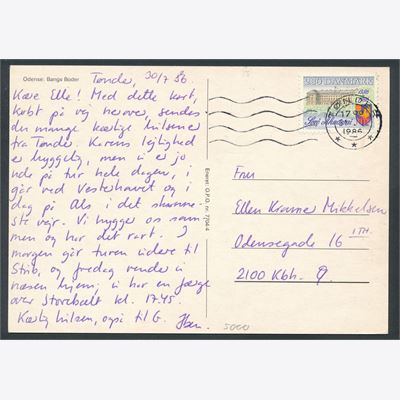 Odense: Bangs Boder
Tønder, 30/7 86.
Kære Elle! Med dette kort,
købt på vej herover, sendes
du mange kærlige hilsener
fra Tønder. Karens lejlighed
er hyggelig, men vi er jo
ude på tur hele dagen, i
går ved Vesterhavet og i
dag på Als i det skønne-
ste vejr. Vi hygger os sam-
men og har det rart. I
morgen går turen videre til
Strib, og fredag vender vi
næsen hjem; vi har en færge
over Storebælt kl. 17.45.
Kærlig hilsen, også til G.
5000
Eneret: O.P.O. nr.
280 DANMARK
TØNDER
1986
Fru
Ellen Krarner Mikkelsen
Odensegade 16 I TH.
2100 Kbh. Ø.